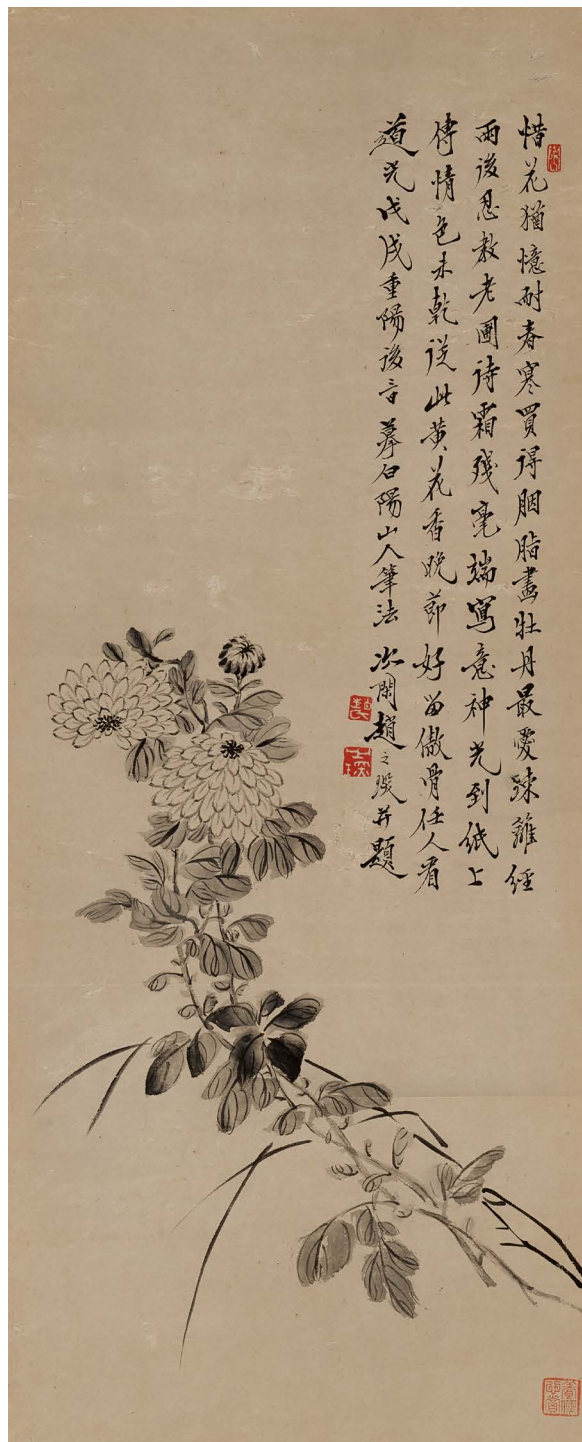 惜花猶憶耐春寒買得胭脂畫牡丹最愛疎籬經
雨後忍教老圃詩霜殘毫端寫意神光到紙上
傳情色未乾從此黃花香晚節好留傲骨任人看
道光戊戌重陽後 摹白陽山人筆法次閑趙之琛并題